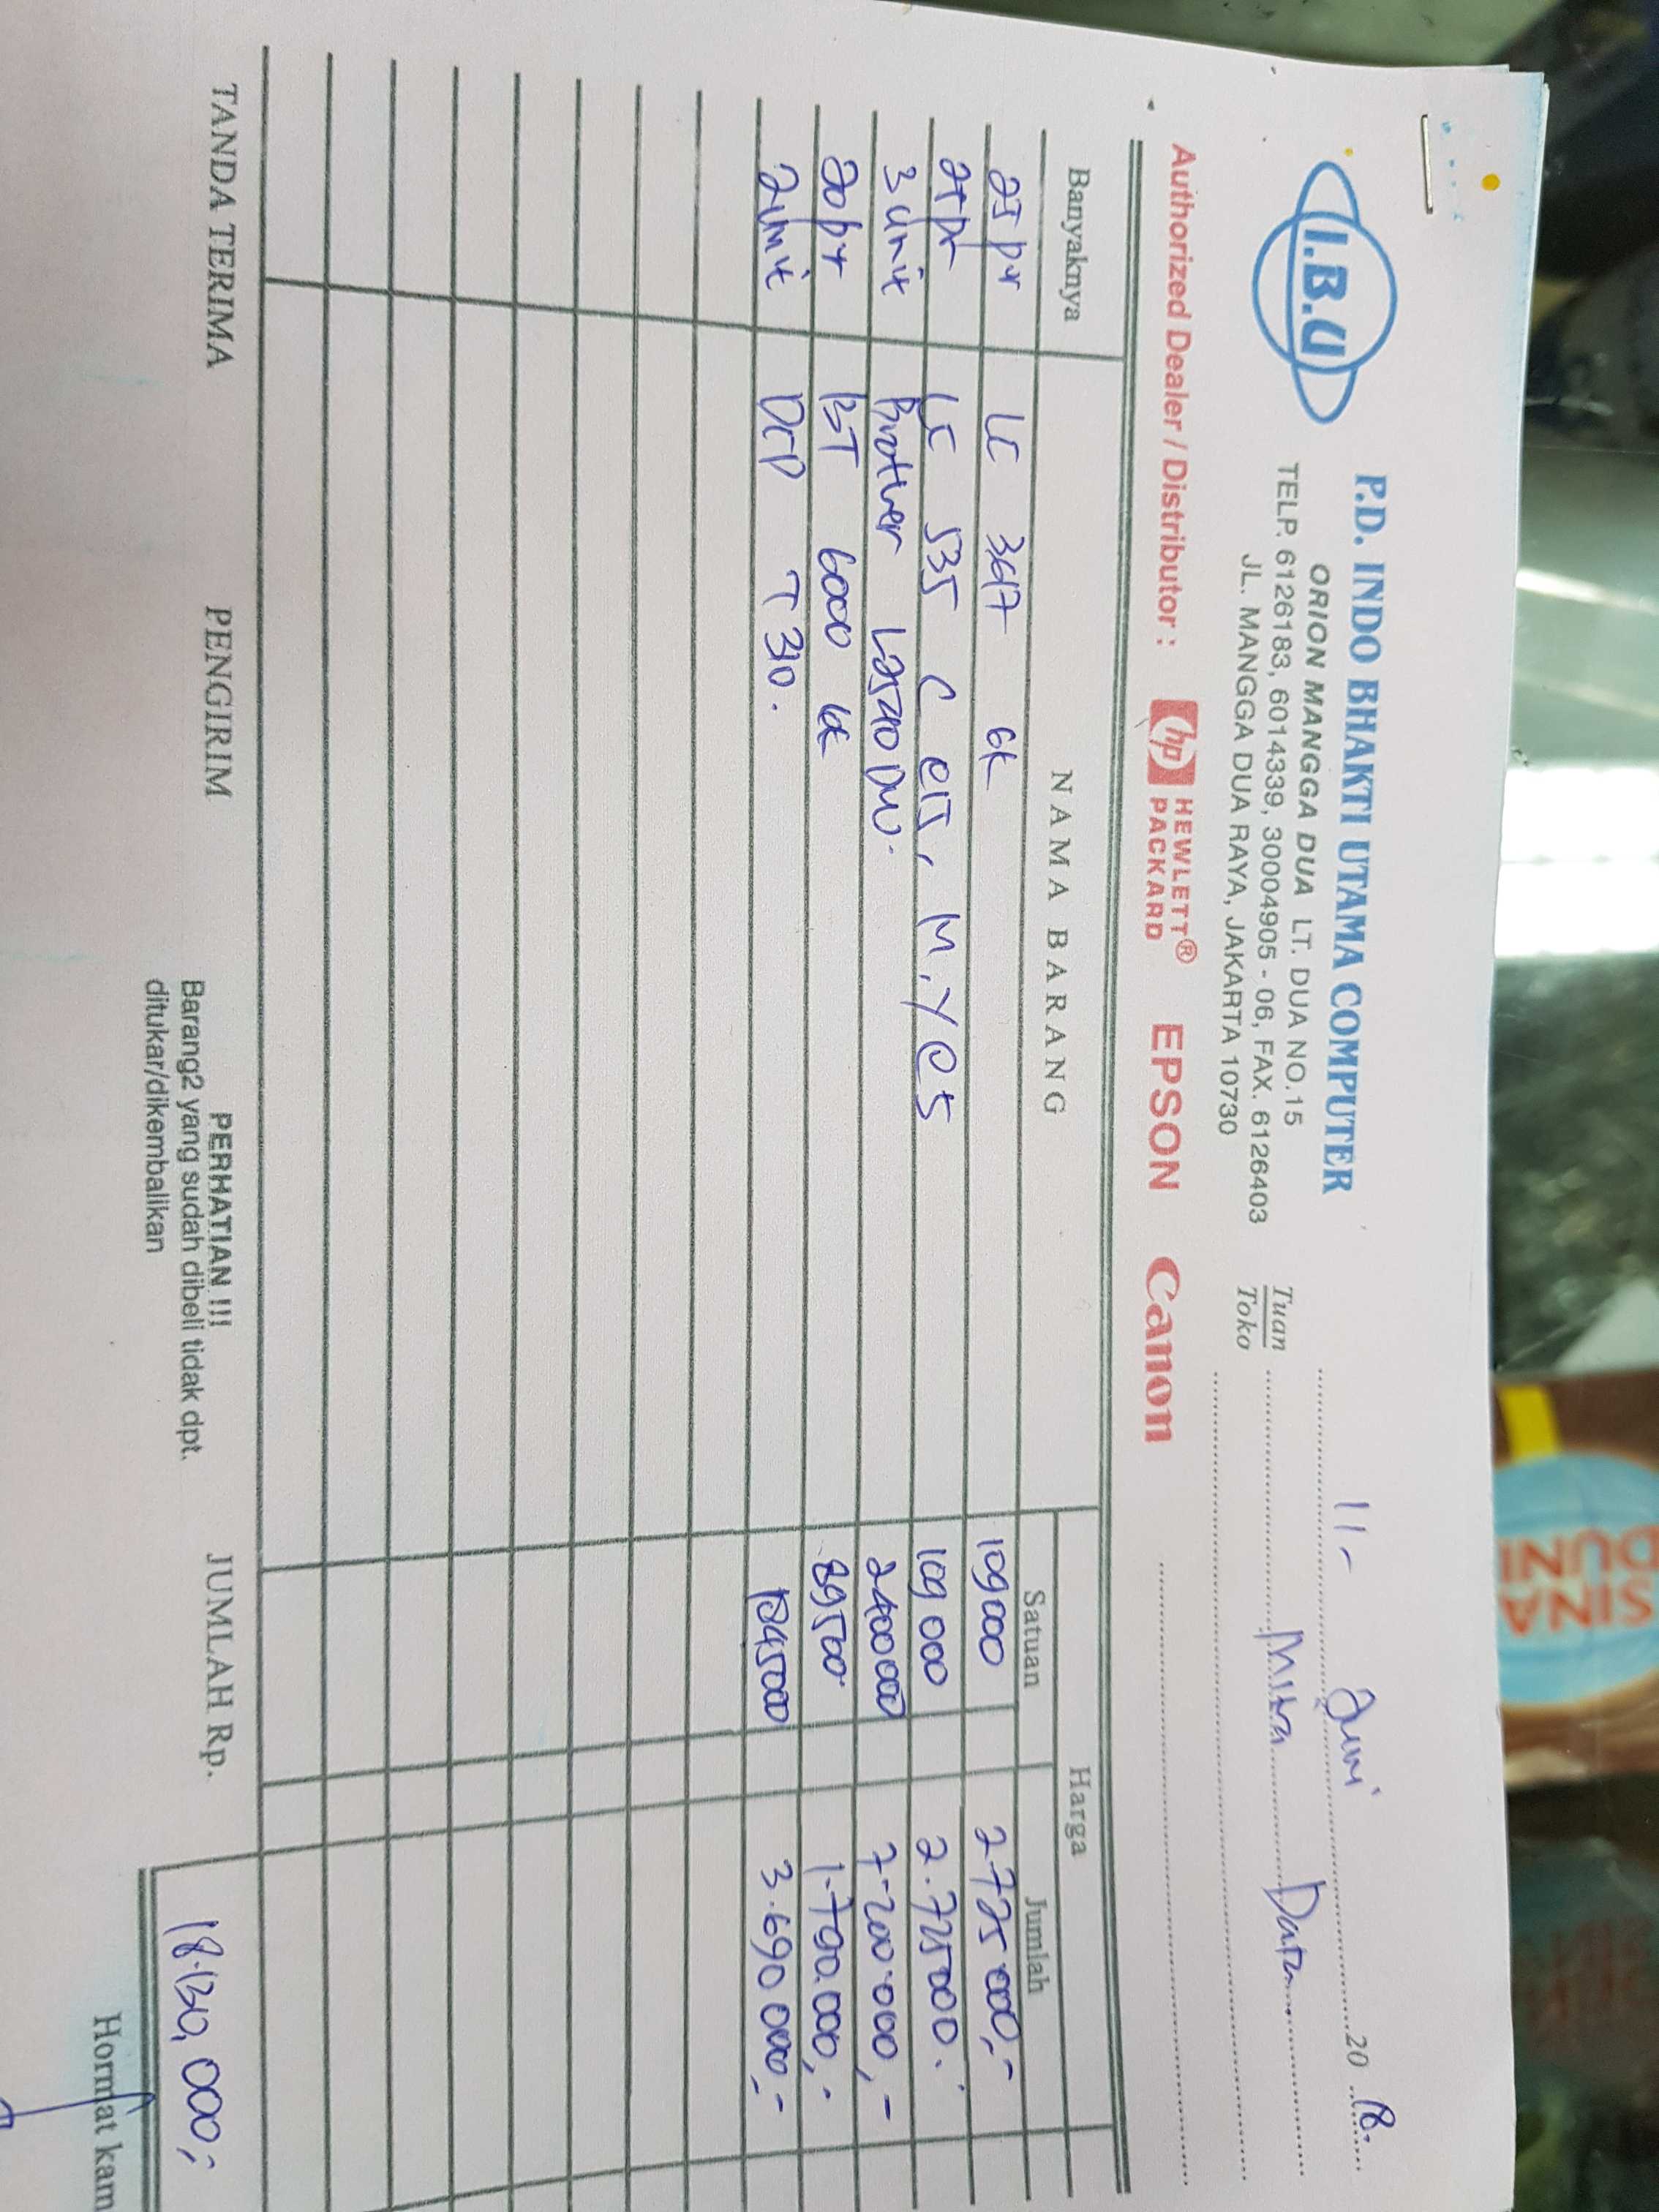 I.B.U
P.D. INDO BHAKTI UTAMA COMPUTER
ORION MANGGA DUA LT. DUA NO.15
TELP. 6126183, 6014339, 30004905 - 06, FAX. 6126403
JL. MANGGA DUA RAYA, JAKARTA 10730
11 - Juni 20 18.
Tuan
Toko
Mitra Data
Authorized Dealer / Distributor : hp HEWLETT® PACKARD EPSON Canon
Banyaknya NAMA BARANG Harga
Satuan Jumlah
25 pr LC 3617 6k 109000 2.725 000,-
25 pr LC 535 C @15, M, Y @5 109 000 2.725000.
3 unit Brother L2540 DW. 2400 000 7.200.000,-
20 pr BT 6000 6k 89500 1.790.000,-
2 unit DCP T 310. 1845000 3.690 000,-
TANDA TERIMA PENGIRIM PERHATIAN !!! JUMLAH Rp. 18.130,000,-
Barang2 yang sudah dibeli tidak dpt.
ditukar/dikembalikan
Hormat kam
SINA
DUNI